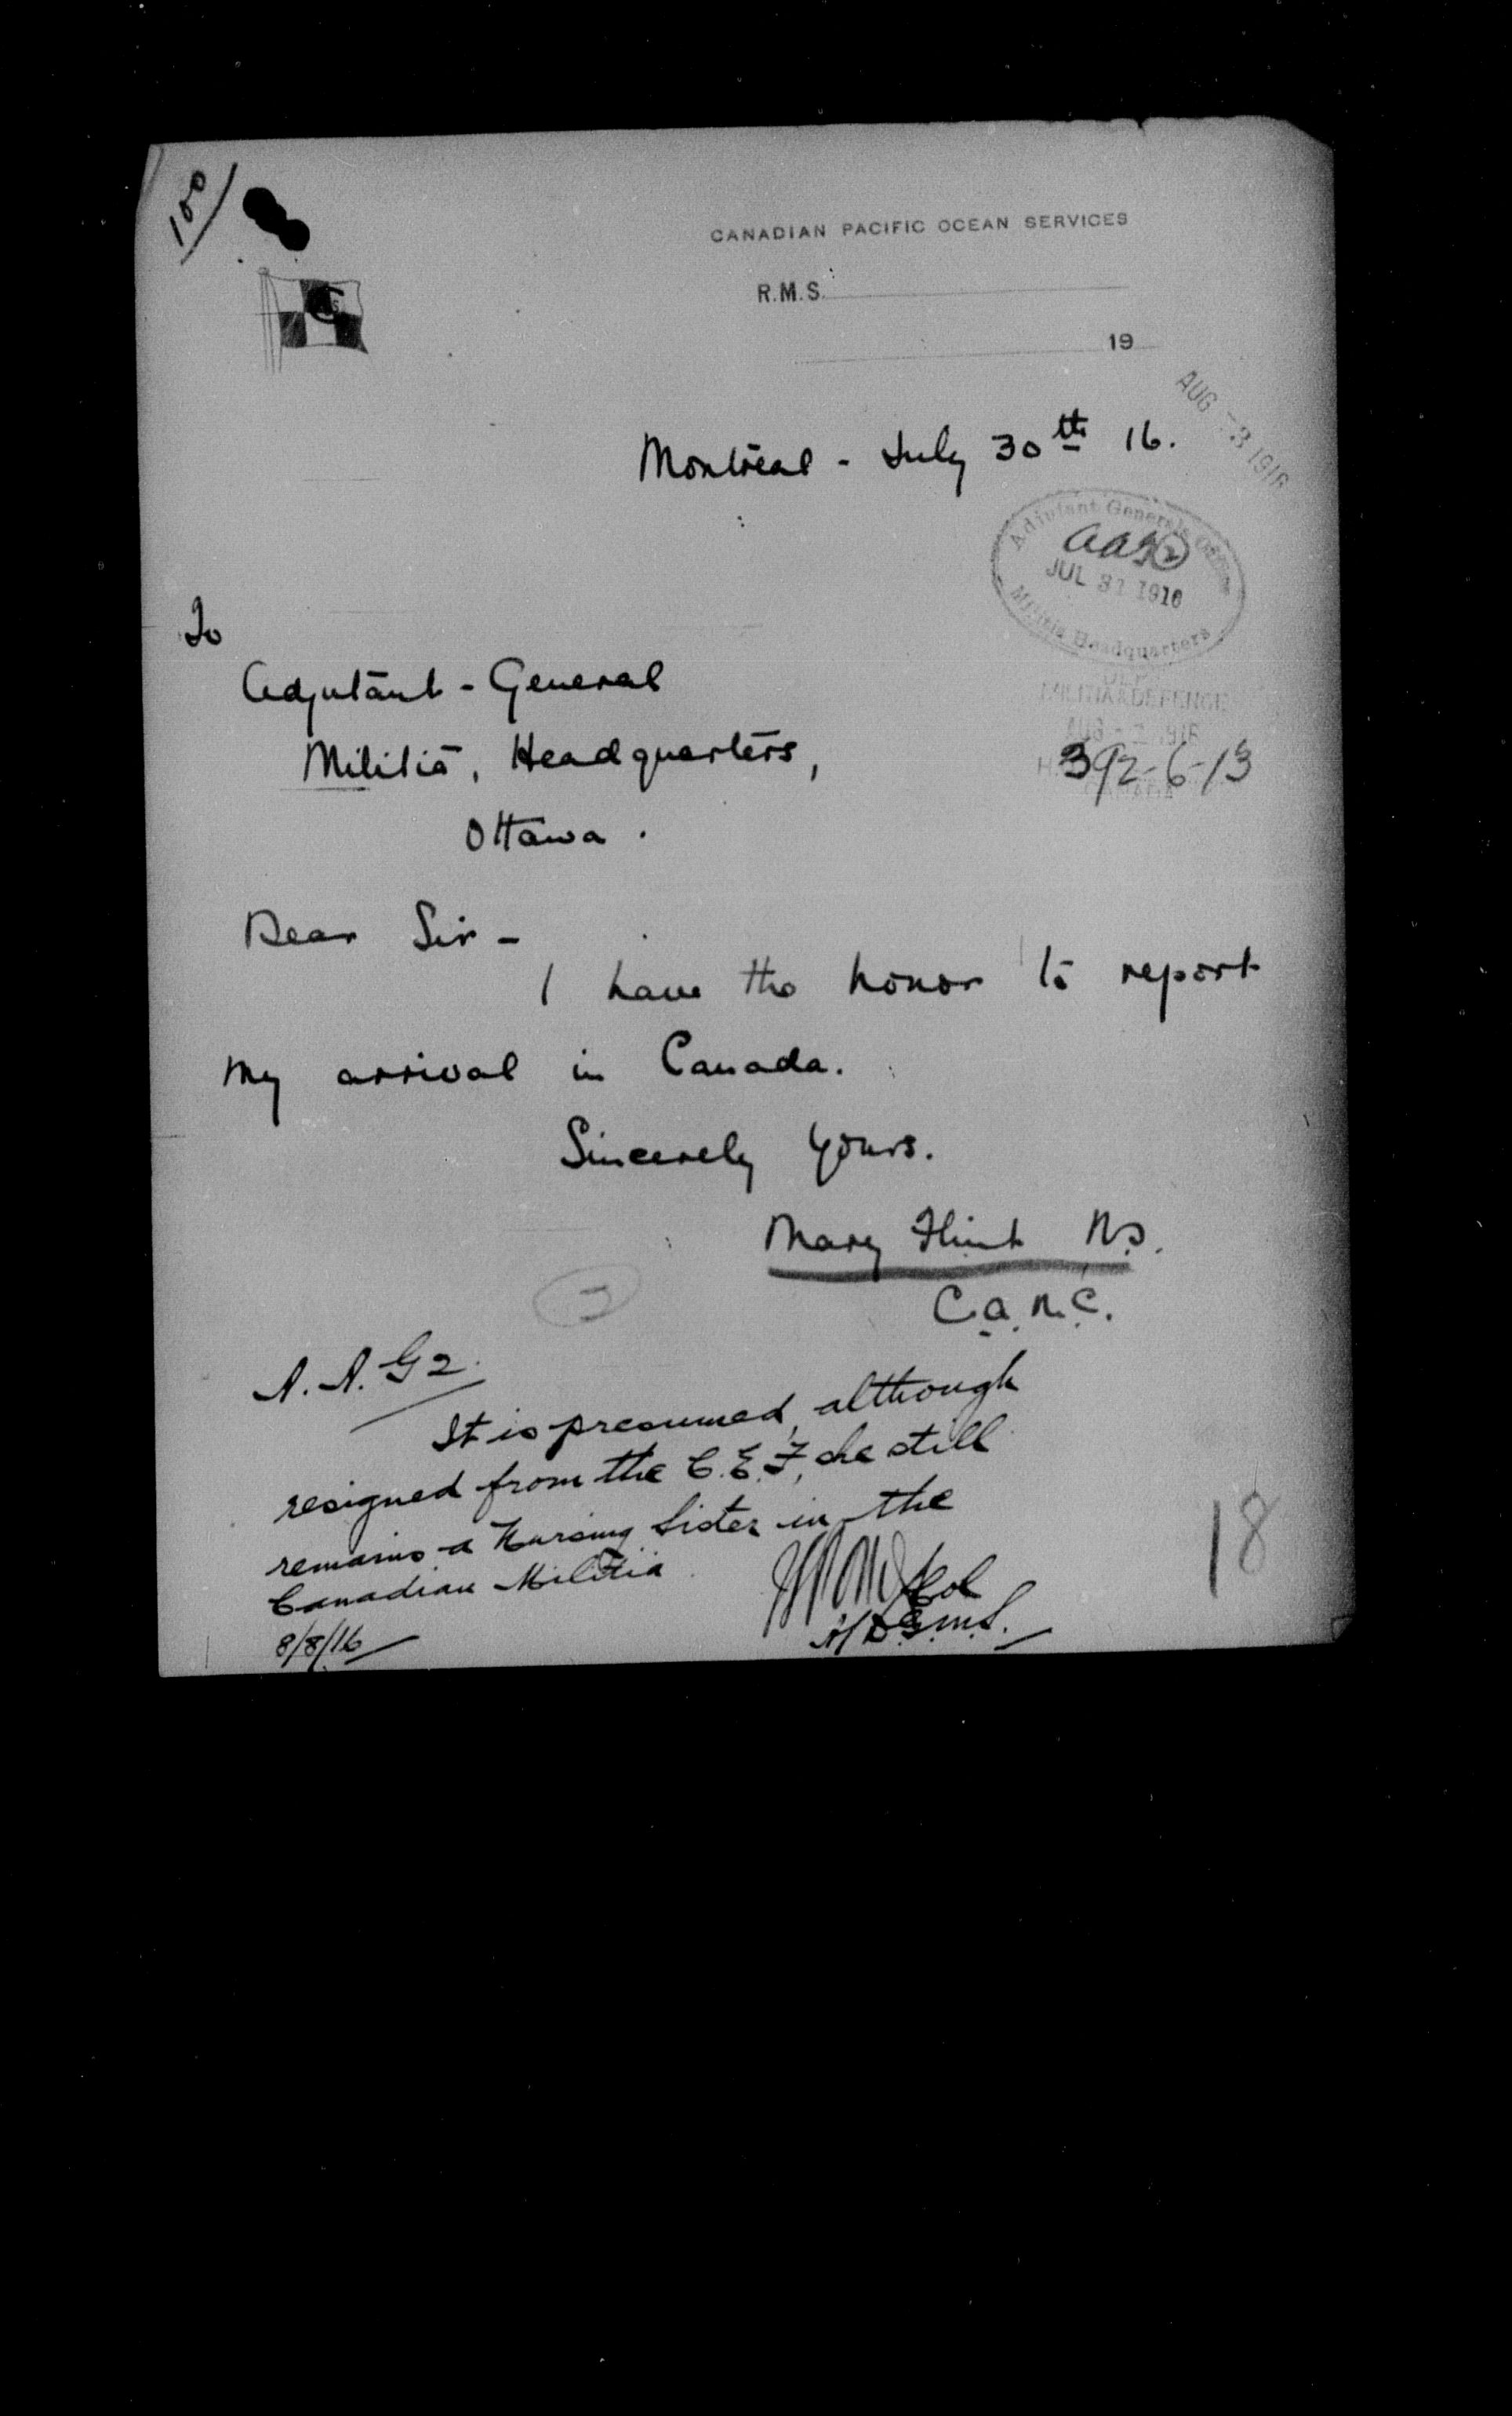 100
CANADIAN PACIFIC OCEAN SERVICES
R.M.S.
19
AUG -3 1916
Montreal - July 30th 16.
Adjutant General's Office
AAG2
JUL 31 1916
Militia Headquarters
To
Adjutant - General
Militia, Headquarters,
Ottawa.
MILITIA & DEFENCE
AUG - 2 1916
CANADA
392-6-13
Dear Sir -
I have the honor to report
my arrival in Canada.
Sincerely Yours.
Mary Flint N.S.
C.A.M.C.
A.A.G2.
It is presumed, although
resigned from the C.E.F, she still
remains a Nursing Sister in the
Canadian Militia
Col
8/8/16
A/D.G.M.S.
18